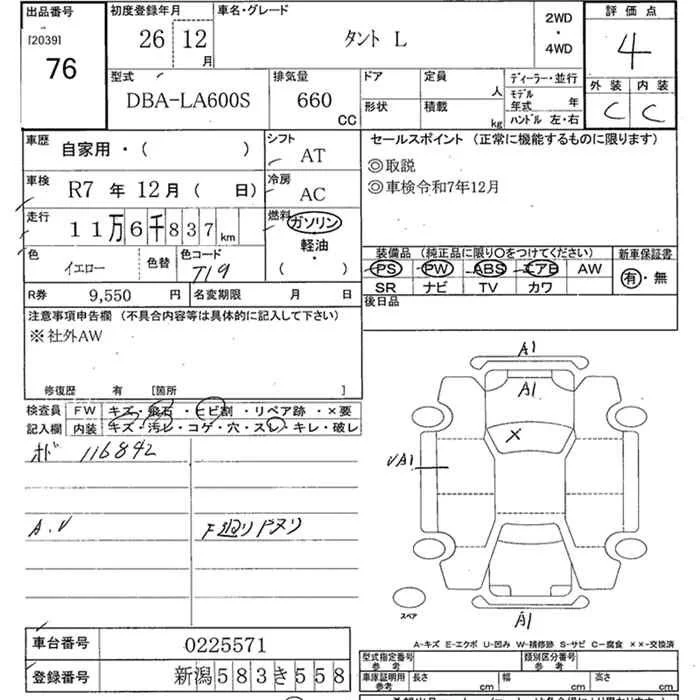 出品番号 初度登録年月 車名・グレード 2WD ・ 4WD 評価点
[2039]
76 26 12月 タント L 4
型式 排気量 ドア 定員 人 ディーラー・並行 外装 内装
DBA-LA600S 660 CC 形状 積載 kg モデル年式 年 C C
ハンドル 左・右
車歴 自家用・( ) シフト AT セールスポイント (正常に機能するものに限ります)
◎取説
車検 R7 年 12月 ( 日) 冷房 AC ◎車検令和7年12月
走行 11万6千837km 燃料 ガソリン
軽油・
( )
色 イエロー 色替 色コード T19 装備品 (純正品に限り○をつけてください) 新車保証書
PS PW ABS エアB AW 有・無
R券 9,550 円 名変期限 月 日 SR ナビ TV カワ
後日品
注意事項申告欄 (不具合内容等は具体的に記入して下さい)
※社外AW
修復歴 有 [箇所 ]
検査員 FW キズ・飛石・ヒビ割・リペア跡・×要
記入欄 内装 キズ・汚レ・コゲ・穴・スレ・キレ・破レ
オド 116842
A.V
下廻りパスリ
A1
A1
×
VA1
A1
スペア
A-キズ E-エクボ U-凹み W-補修跡 S-サビ C-腐食 ××-交換済
車台番号 0225571
登録番号 新潟583き558
型式指定番号 参考 類別区分番号 参考
車庫証明用 参考 長さ cm 幅 cm 高さ cm